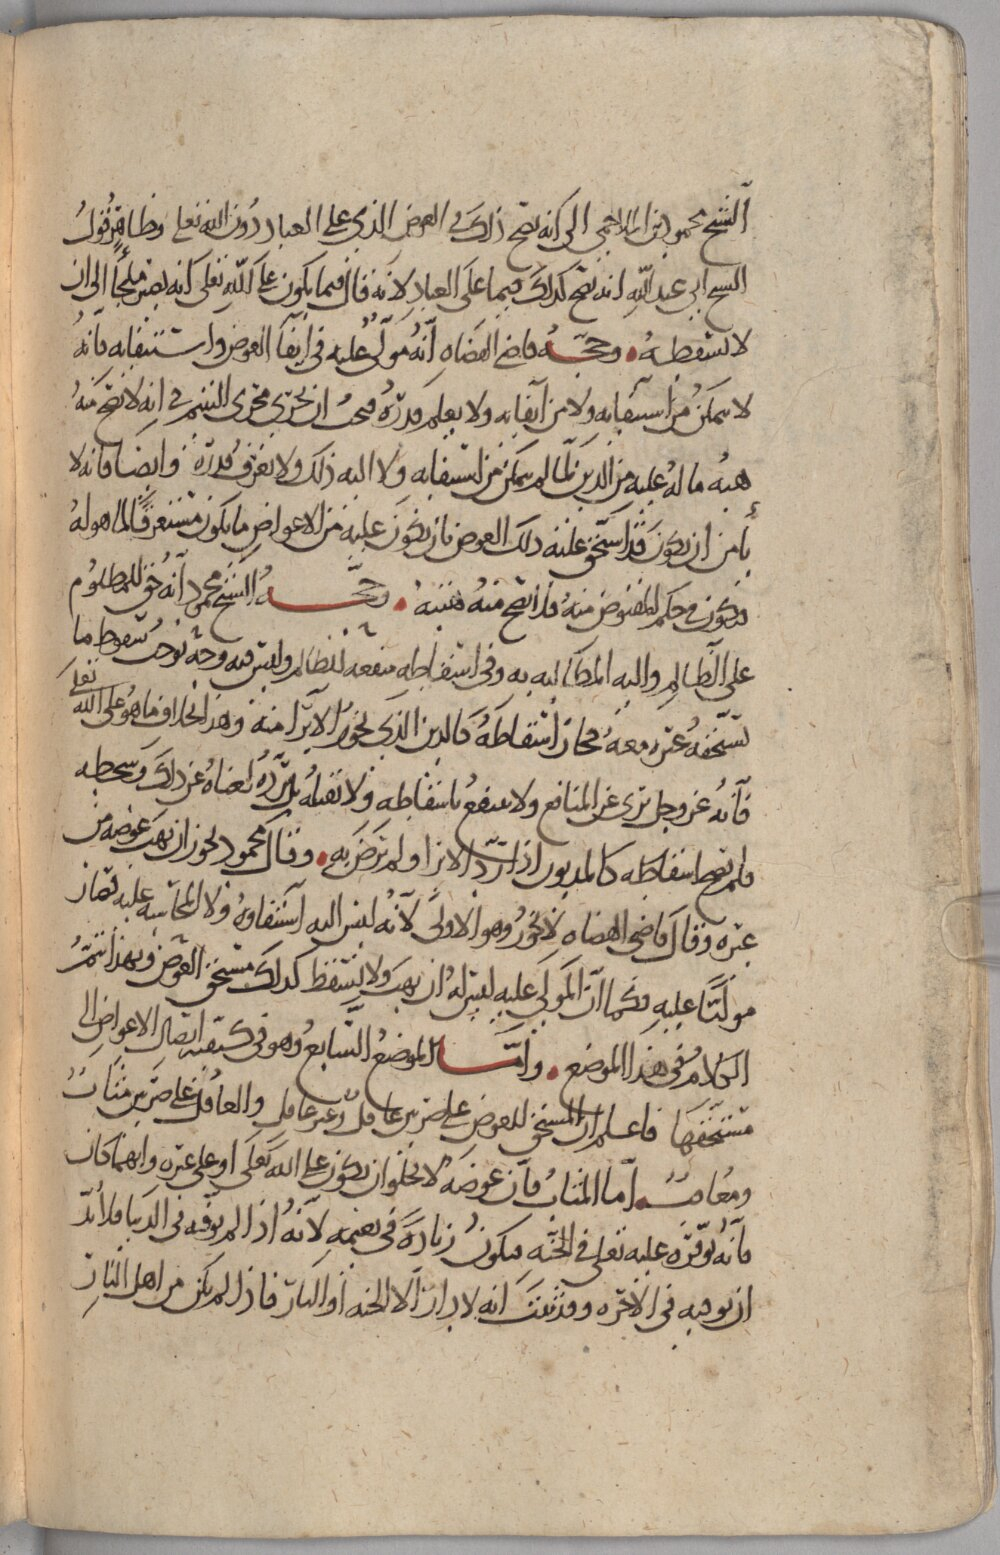 الشيخ محمود بن الملاحمي الى انه يصح ذلك في العوض الذي على العباد دون الله تعلى وظاهر قول
الشيخ ابي عبد الله انه يصح كذلك فيما على العباد لانه قال فيما يكون على الله تعلى انه يصير ملجأ الى ان
لا يسقط به • وحجه قاضي القضاه انه مولى عليه في ايفا العوض واستيفايه فانه
لا يتمكن من استيفايه ولا من ايفايه ولا يعلم قدره فيجب ان يجري مجرى اليتيم في انه لا تصح منه
هبه ما له عليه من الدين لما لم يتمكن من استيفايه ولا اليه ذلك ولا يعرف قدره وايضا فانه لا
يأمن ان يكون قد استحق عليه ذلك العوض بان يكون عليه من الاعواض ما يكون مستغرقا لما هو له
فيكون في حكم المقبوض منه فلا تصح منه هبته • وحجه الشيخ محمود انه حق للمظلوم
على الظالم واليه المطالبه به وفي اسقاطه منفعه للظالم وليس فيه وجه يوجب سقوط ما
يستحقه غيره معه فجاز اسقاطه كالدين الذي يجوز الابرا منه وهذا بخلاف ما هو على الله تعلى
فانه عز وجل بري عن المنافع ولا ينتفع باسقاطه ولا يقبله بل يرده لغناه عن ذلك وسخطه
فلم يصح اسقاطه كالمديون اذا رد الابرا ولم يرض به • وقال محمود يجوز ان يهب عوضه من
غيره وقال قاضي القضاه لا يجوز وهو الاولى لانه ليس اليه استيفاوه ولا المحاسبه عليه فصار
موليا عليه فكما ان المولى عليه ليس له ان يهب ولا يسقط كذلك مستحق العوض وبهذا يتم
الكلام في هذا الموضع • واما الموضع السابع وهو في كيفيه ايصال الاعواض الى
مستحقها فاعلم ان المستحق للعوض على ضربين عاقل وغير عاقل والعاقل على ضربين مثاب
ومعاقب • اما المثاب فان عوضه لا يخلو ان يكون على الله تعلى او على غيره وايهما كان
فانه يوفره عليه تعلى في الجنه فيكون زياده في نعيمه لانه اذا لم يوفه في الدنيا فلا بد
ان يوفيه في الاخره وقد ثبت انه لا دار الا الجنه او النار فاذا لم يكن من اهل النار